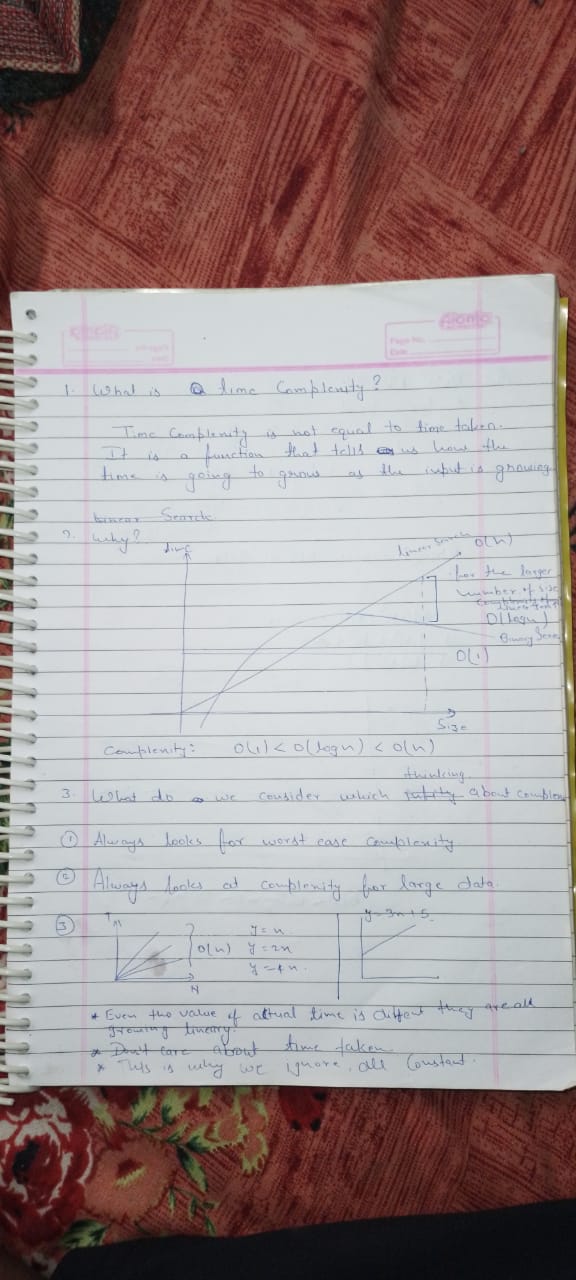 Aroma
Page No.
Date
1. What is a time Complexity?
Time Complexity is not equal to time taken.
It is a function that tells us how the
time is going to grow as the input is growing
Linear Search
2. Why?
time
linear search O(n)
for the larger
number of size
O(logn)
Binary Sear
O(1)
Size
Complexity: O(1) < O(logn) < O(n)
thinking
3. What do we consider which about complex
① Always looks for worst case complexity
② Always looks at complexity for large data.
③
T
y=n
O(n) y=2n
y=4n.
N
y=3n+5
* Even tho value of actual time is diffent they are all
growing lineary.
* Don't care about time taken
* This is why we ignore, all Constant.